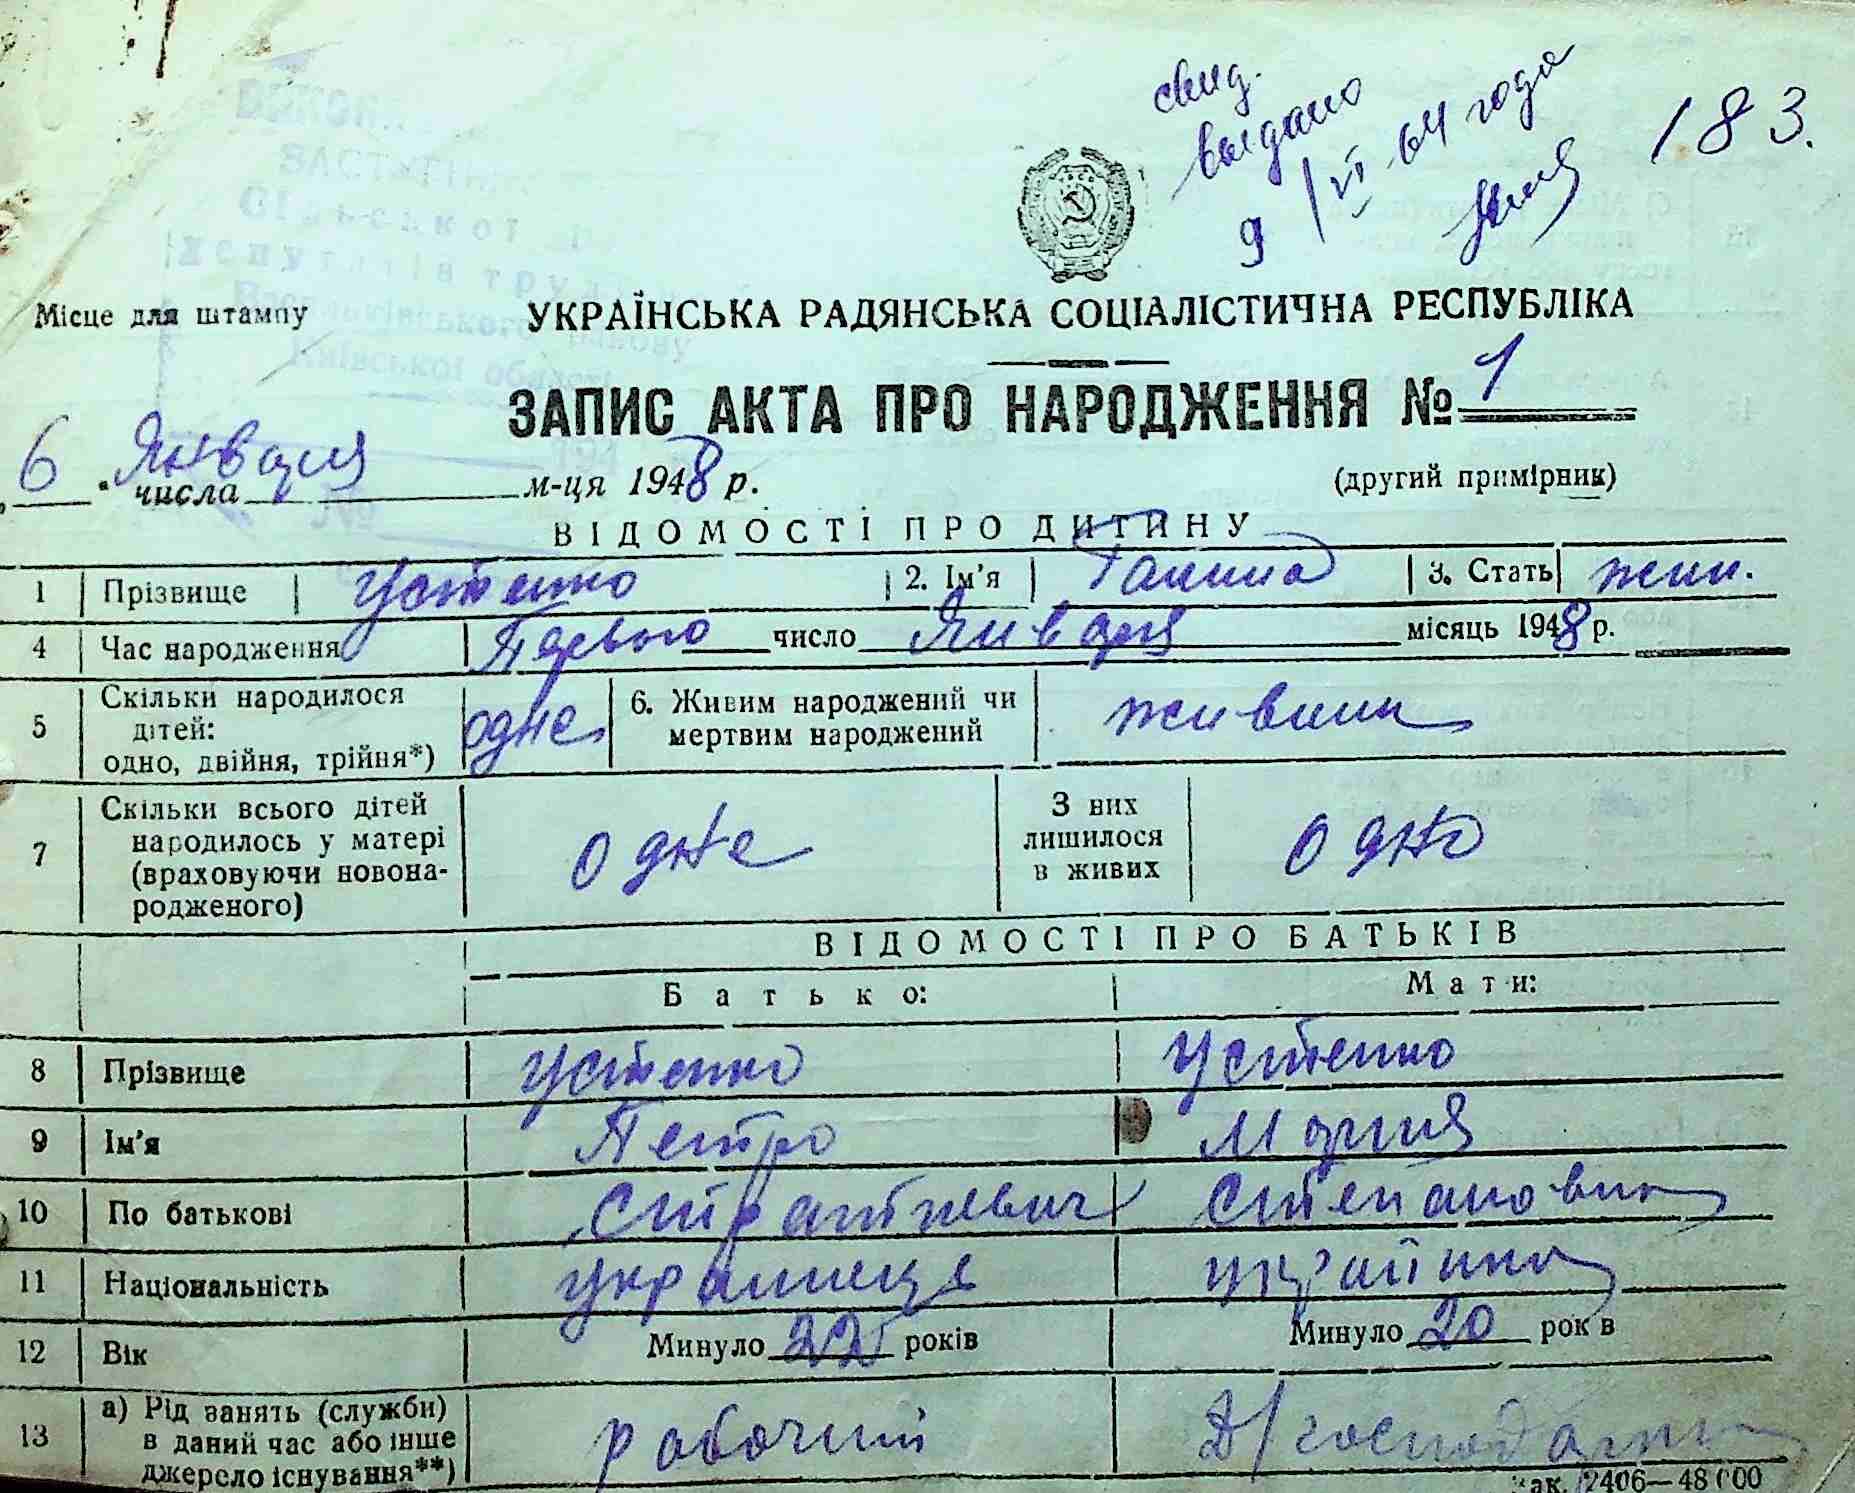 свид.
выдано
9/VI 64 года
183.
Сільської
депутатів трудящих
Київської області
Місце для штампу
УКРАЇНСЬКА РАДЯНСЬКА СОЦІАЛІСТИЧНА РЕСПУБЛІКА
ЗАПИС АКТА ПРО НАРОДЖЕННЯ № 1
„6" числа Января м-ця 1948 р.
(другий примірник)
ВІДОМОСТІ ПРО ДИТИНУ
1 Прізвище Устенко 2. Ім'я Галина 3. Стать жин.
4 Час народження Первого число Января місяць 1948 р.
5 Скільки народилося дітей: одно, двійня, трійня*) одне 6. Живим народжений чи мертвим народжений живим
7 Скільки всього дітей народилось у матері (враховуючи новонародженого) одне З них лишилося в живих одно
ВІДОМОСТІ ПРО БАТЬКІВ
Батько: Мати:
8 Прізвище Устенко Устенко
9 Ім'я Петро Мария
10 По батькові Степановна
11 Національність українець
12 Вік Минуло 22 років Минуло 20 рок в
13 а) Рід занять (служби) в даний час або інше джерело існування**) рабочий Д/господарка
Зак. 2406—48 000